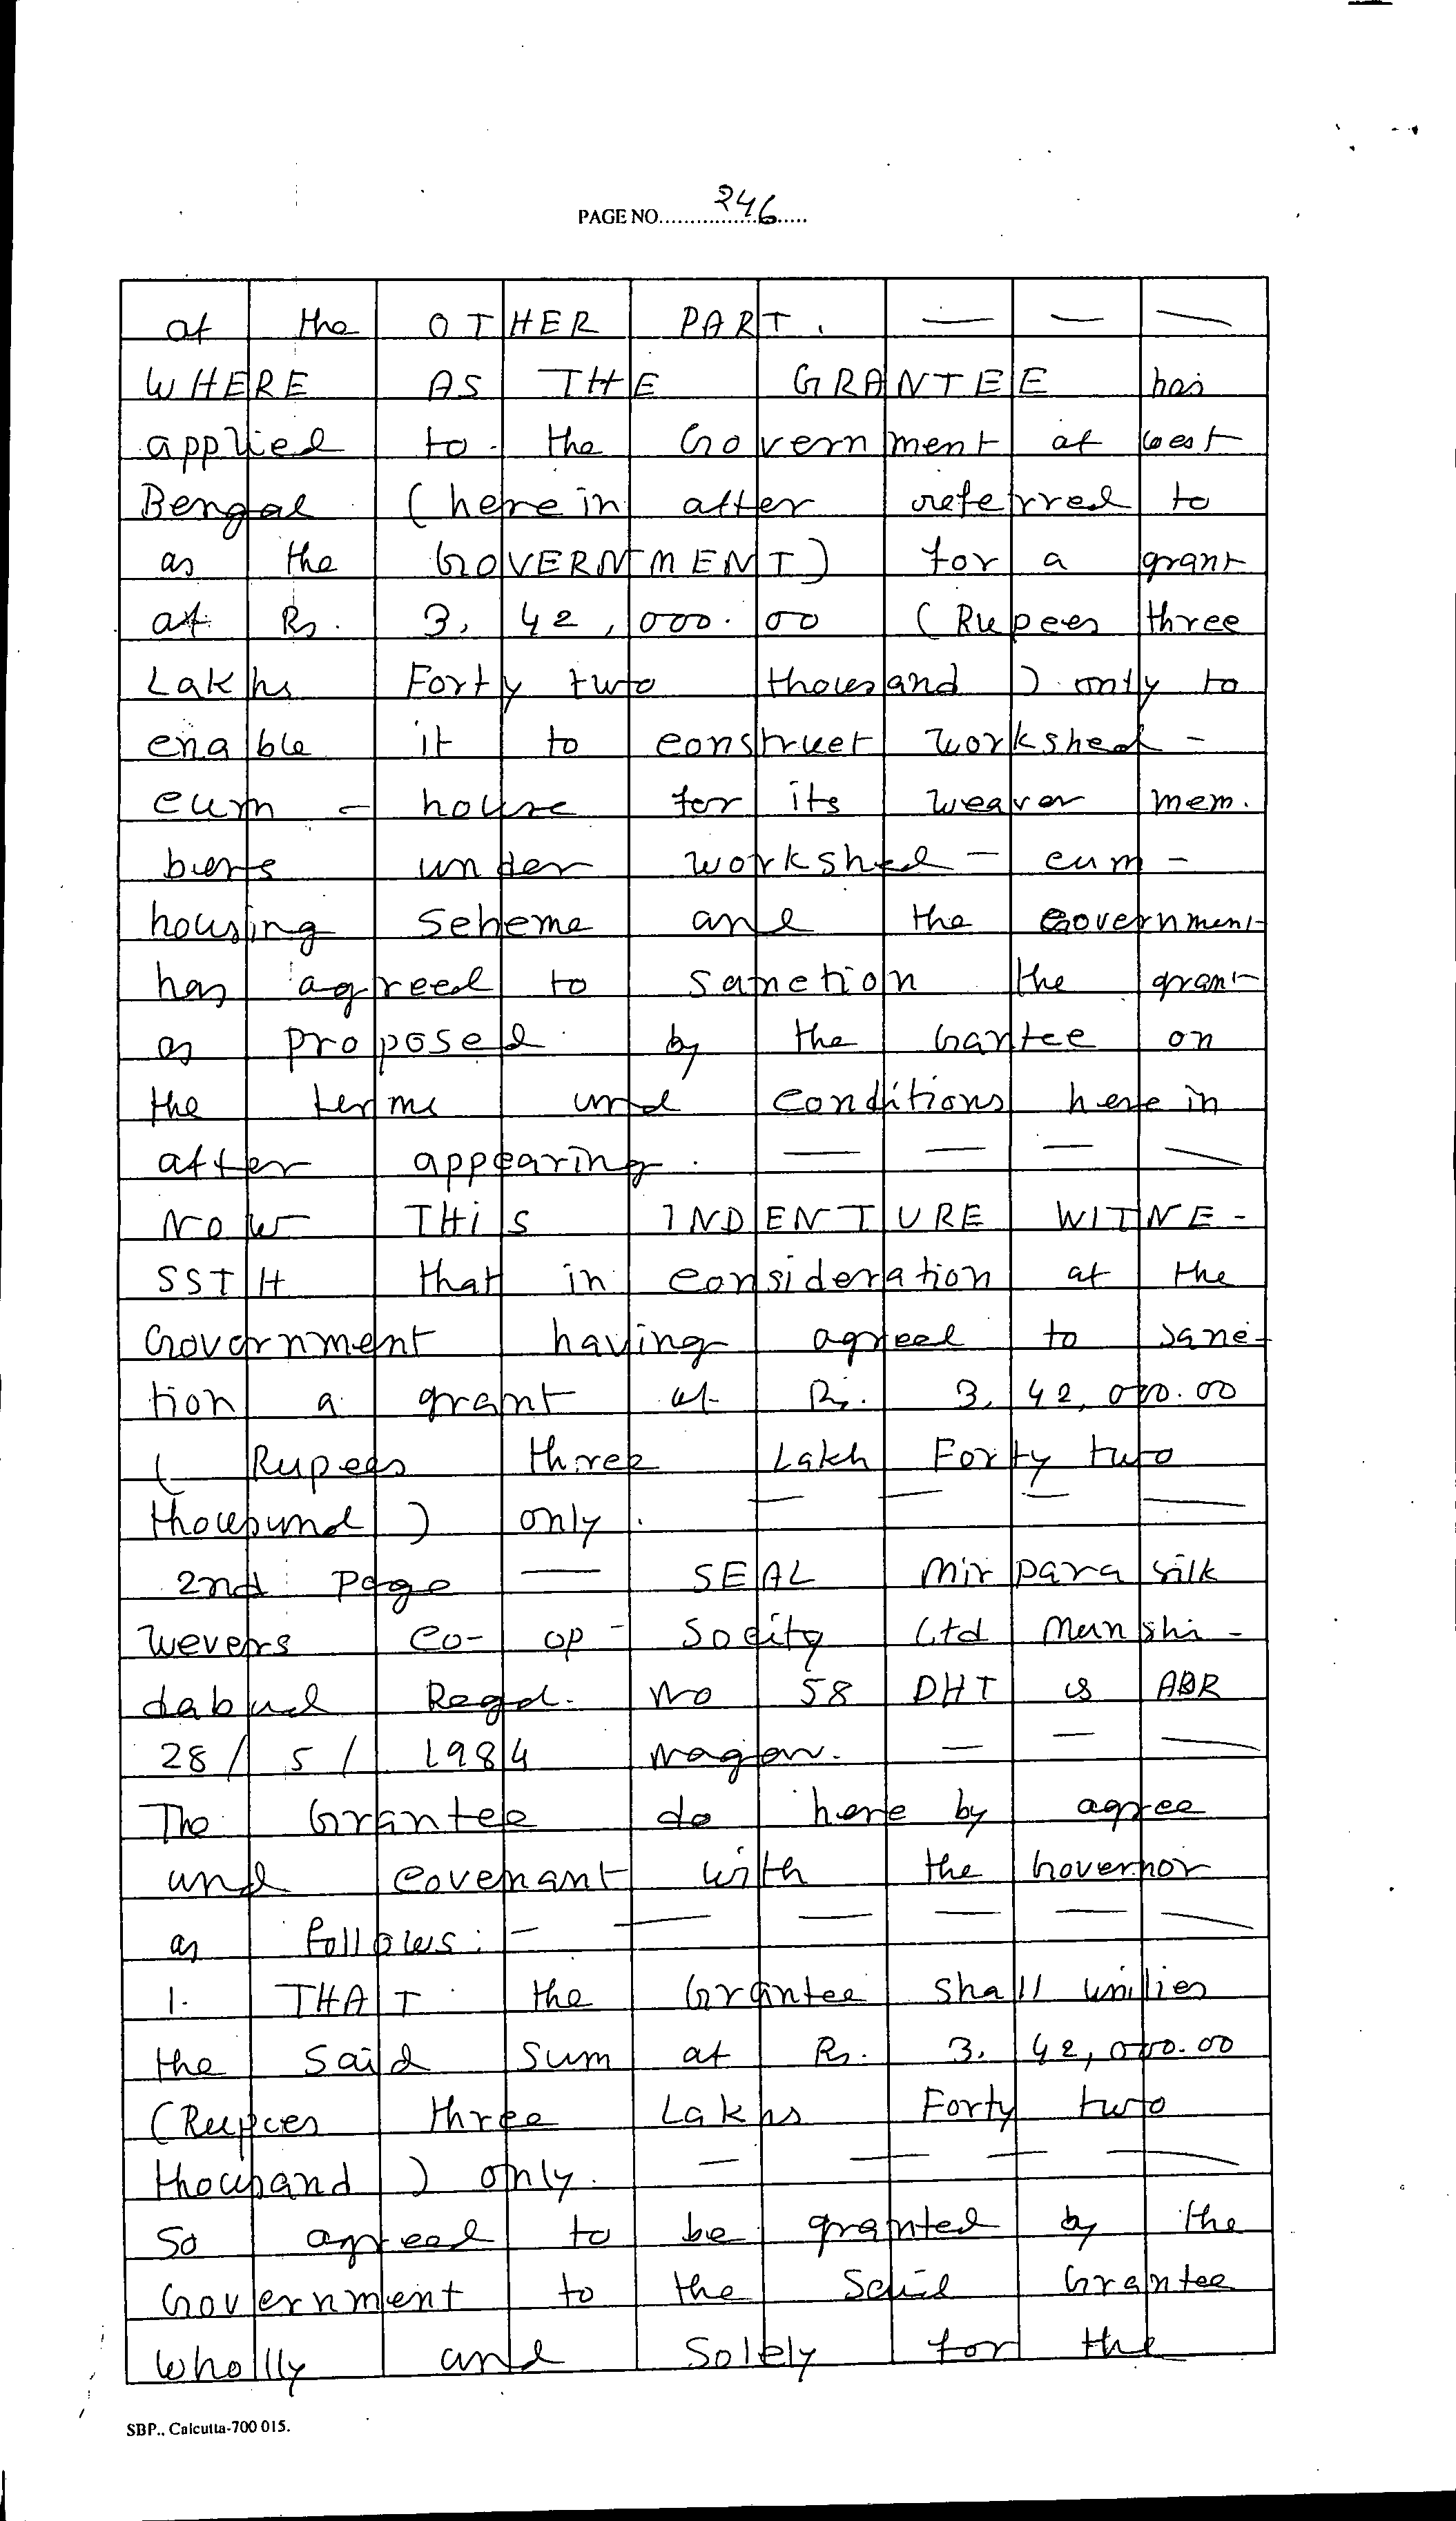 PAGE NO. 246
of the OTHER PART. — — —
WHERE AS THE GRANTEE has
applied to the Government of west
Bengal (here in after referred to
as the GOVERNMENT) for a grant
of Rs. 3, 42, 000. 00 (Rupees three
Lakhs Forty two thousand) only to
enable it to construct workshed -
cum - house for its weaver mem.
bers under workshed - cum -
housing Scheme and the Government
has agreed to sanction the grant
as proposed by the Grantee on
the terms and conditions here in
after appearing. — — — —
Now THIS INDENTURE WITNE -
SSTH that in consideration of the
Government having agreed to sanc-
tion a grant of Rs. 3, 42, 000.00
( Rupees three Lakh Forty two
thousand ) only. — — — —
2nd page — SEAL Mirpara Silk
wevers Co- op - Socity Ltd Murshi -
dabad Regd. No 58 DHT is ABR
28 / 5 / 1984
The Grantee do here by agree
and covenant with the Governor
as follows : — — — — — —
1. THAT the Grantee shall
the said sum of Rs. 3, 42, 000.00
(Rupees three Lakhs Forty two
thousand ) only. — — — —
So agreed to be granted by the
Government to the Said Grantee
wholly and Solely for the
SBP., Calcutta-700 015.